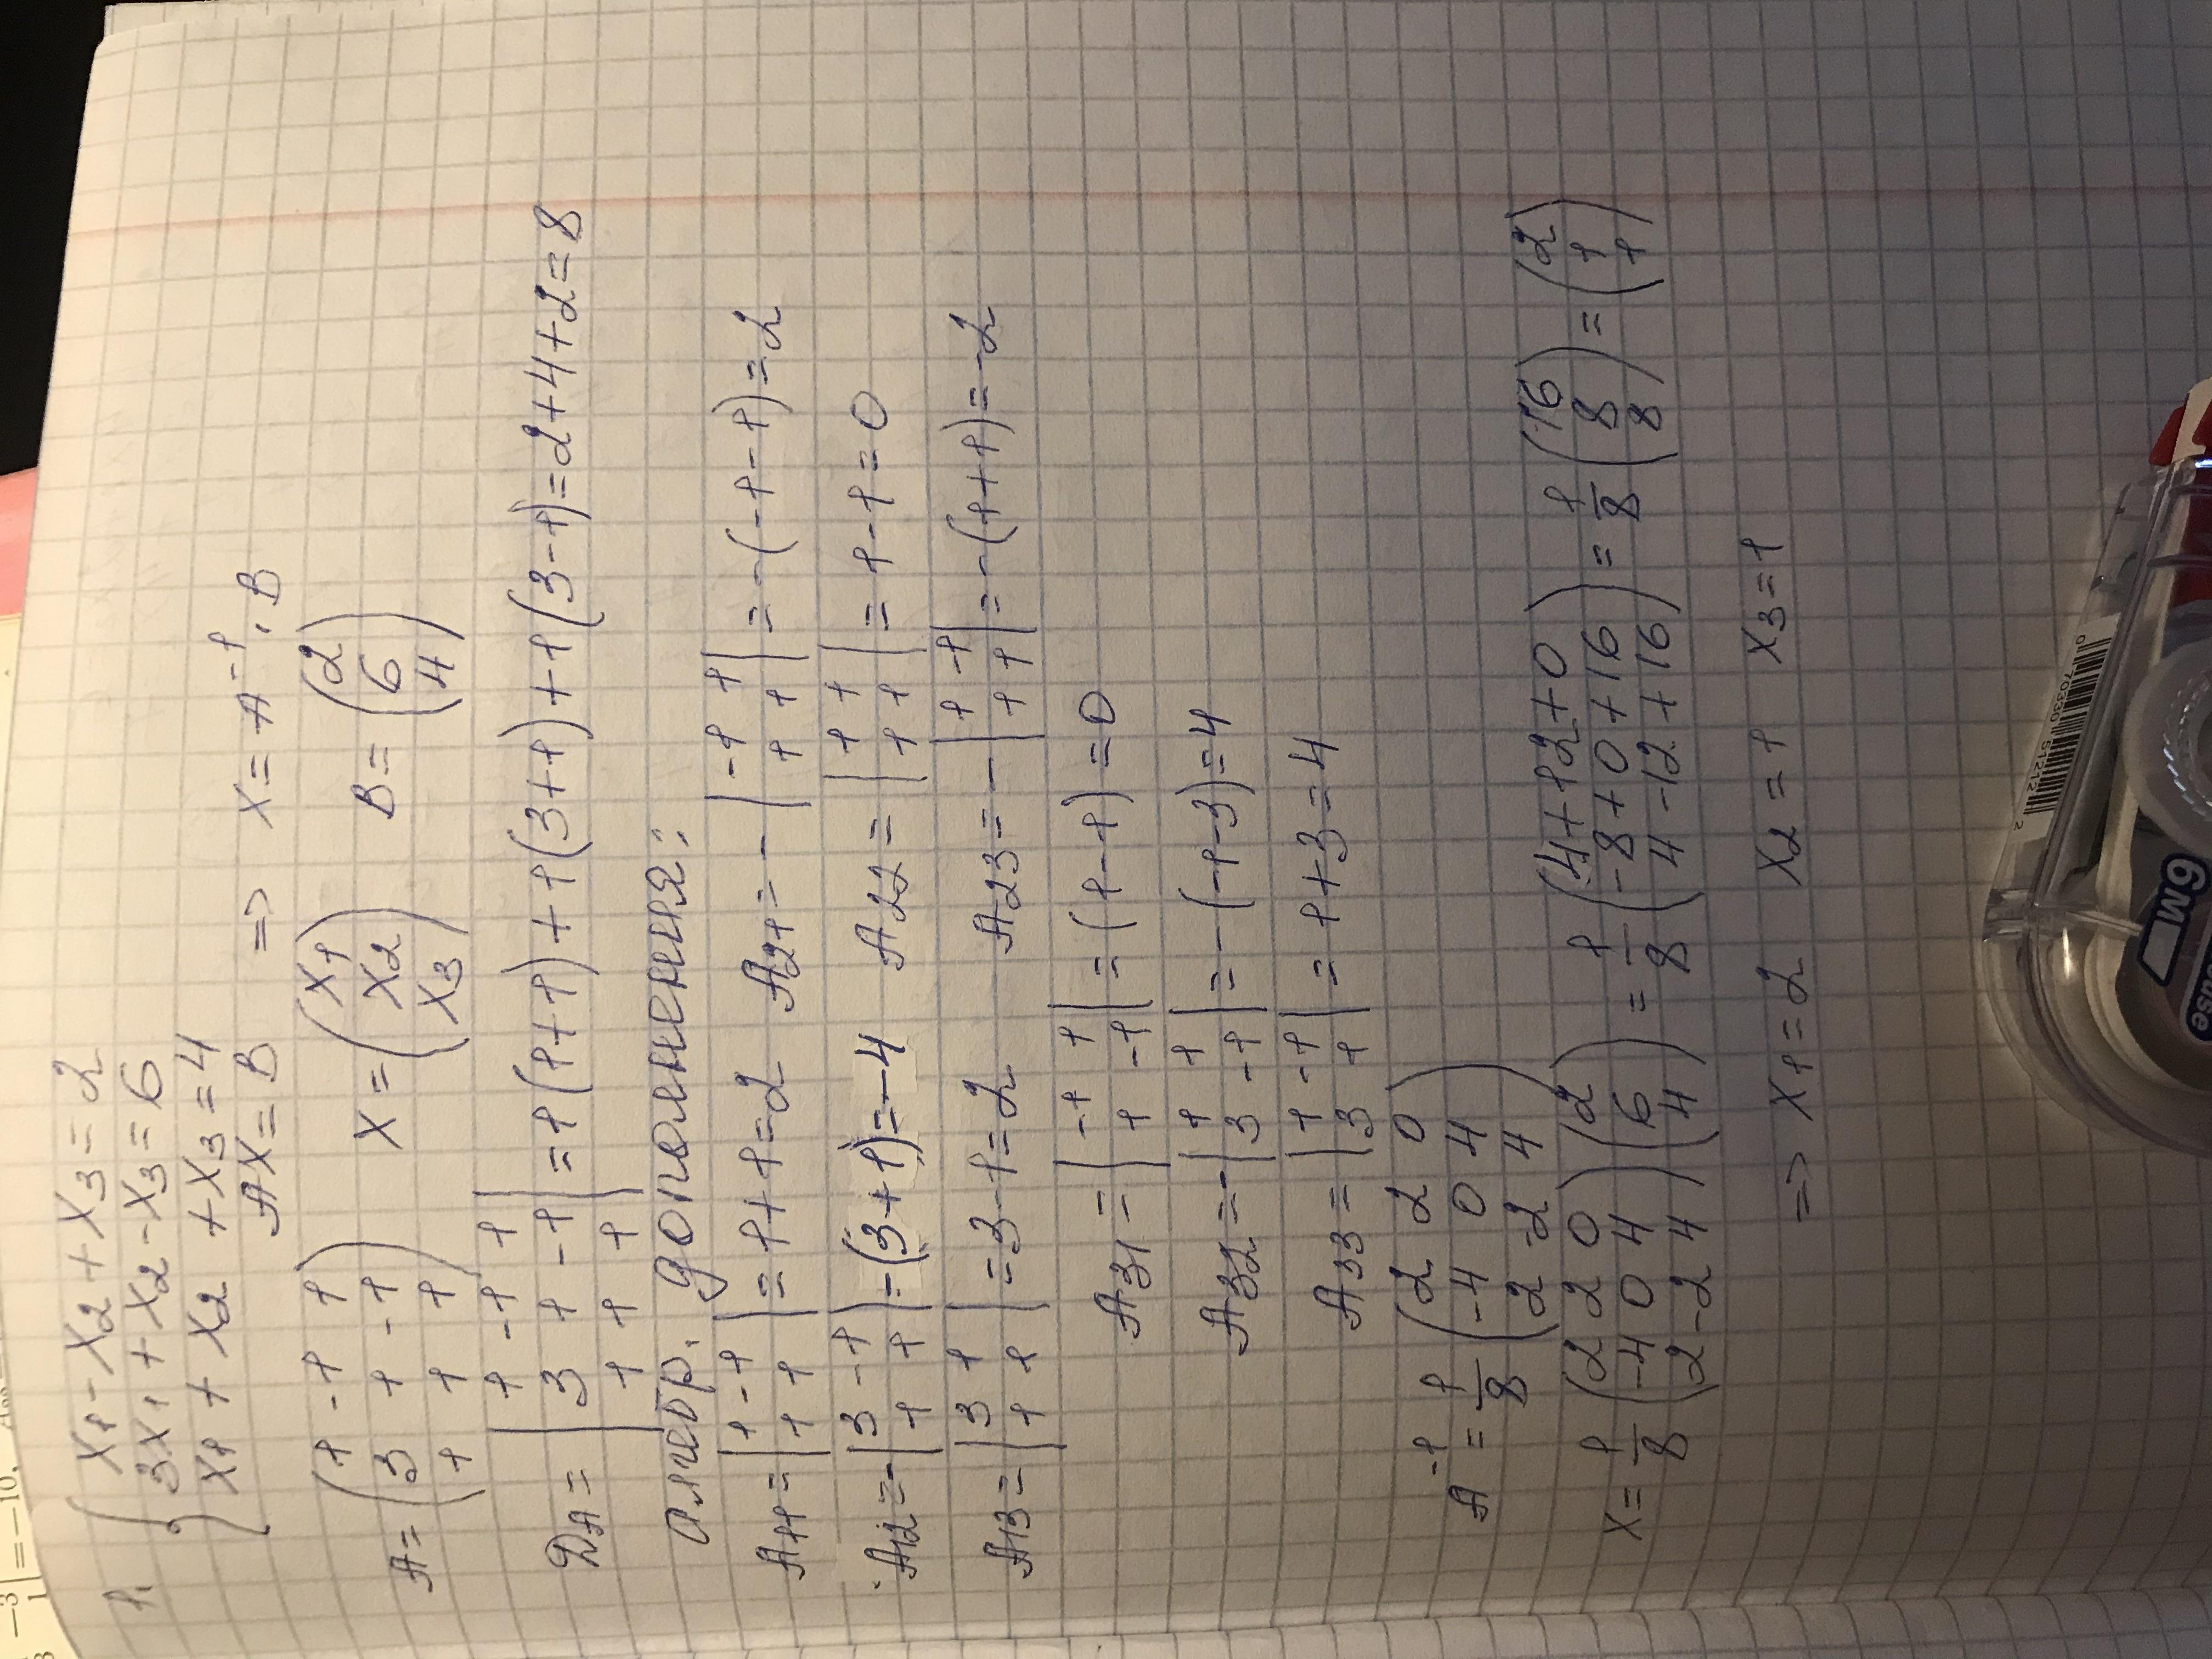 1. { x1 - x2 + x3 = 2
3x1 + x2 - x3 = 6
x1 + x2 + x3 = 4
AX = B => X = A^-1 · B
A = (1 -1 1; 3 1 -1; 1 1 1) X = (x1; x2; x3) B = (2; 6; 4)
DA = |1 -1 1; 3 1 -1; 1 1 1| = 1(1+1) + 1(3+1) + 1(3-1) = 2+4+2 = 8
алгебр. дополнения:
A11 = |1 -1; 1 1| = 1+1 = 2 A21 = - |-1 1; 1 1| = -(-1-1) = 2
A12 = - |3 -1; 1 1| = -(3+1) = -4 A22 = |1 1; 1 1| = 1-1 = 0
A13 = |3 1; 1 1| = 3-1 = 2 A23 = - |1 -1; 1 1| = -(1+1) = -2
A31 = |-1 1; 1 -1| = (1-1) = 0
A32 = - |1 1; 3 -1| = -(-1-3) = 4
A33 = |1 -1; 3 1| = 1+3 = 4
A^-1 = 1/8 (2 2 0; -4 0 4; 2 -2 4)
X = 1/8 (2 2 0; -4 0 4; 2 -2 4) (2; 6; 4) = 1/8 (4+12+0; -8+0+16; 4-12+16) = 1/8 (16; 8; 8) = (2; 1; 1)
=> x1 = 2 x2 = 1 x3 = 1
6M
0 70330 51212 2